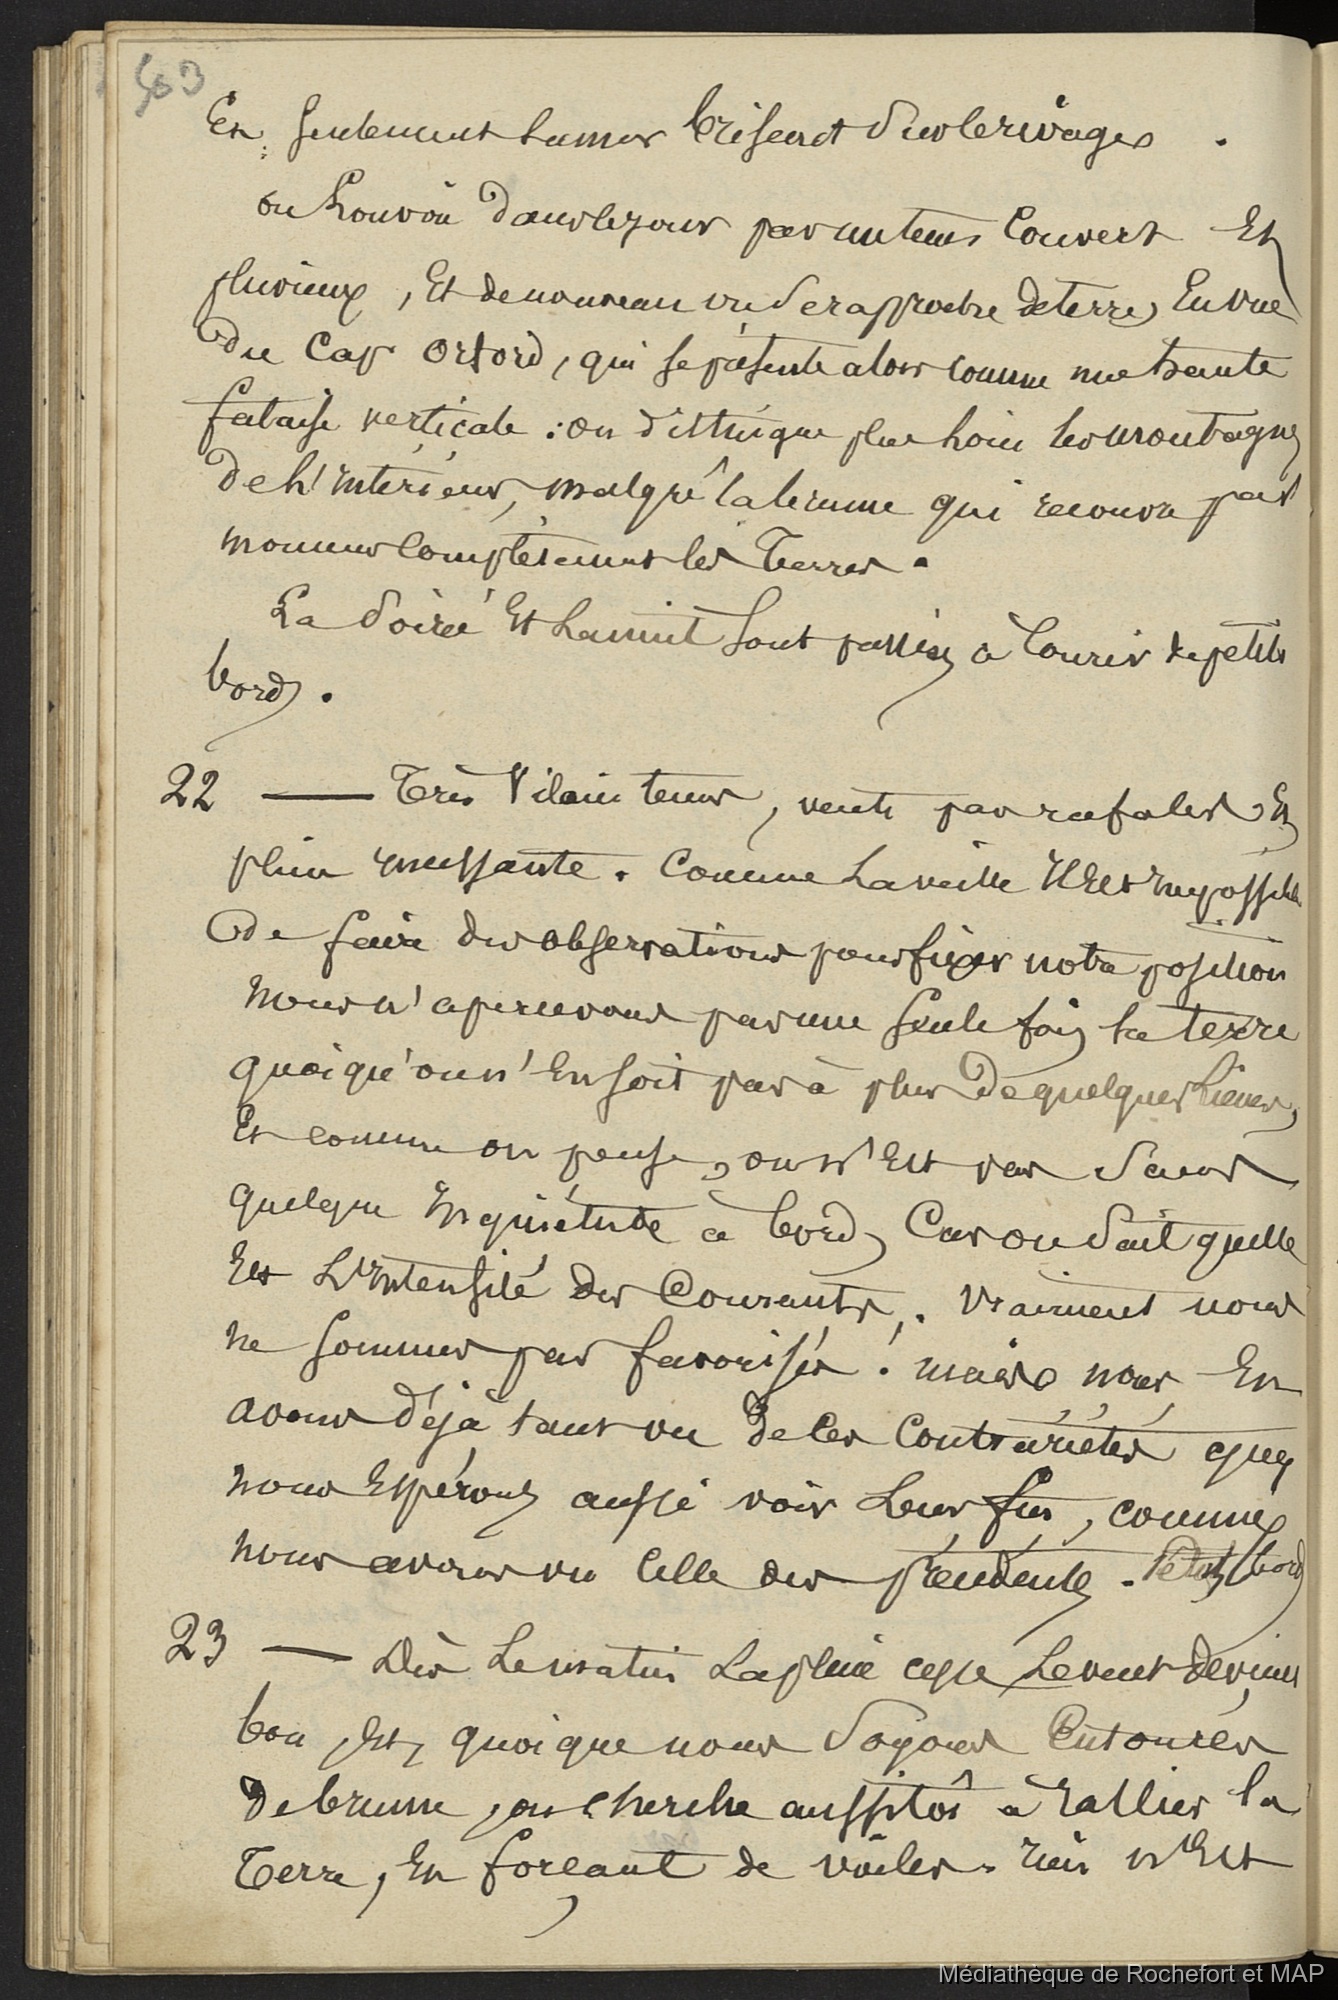 403
Et seulement la mer brisant sur le rivage.
on louvoie dans le jour par un tems couvert Et
pluvieux, Et de nouveau on se rapproche de terre, En vue
Du Cap Orford, qui se présente alors comme une haute
falaise verticale : on distingue plus loin les montagnes
De l'intérieur, malgré la brume qui recouvre par
momens complètement les Terres.
La Soirée Et la nuit sont passées à Courir de petits
bords.
22 — Très Vilain tems, vents par rafales Et
pluie incessante. Comme la veille Il Est Impossible
De faire des observations pour fixer notre position
Nous n'apercevons pas une seule fois la terre
quoiqu'on n'En soit pas à plus De quelques lieues,
Et comme on pense, on n'Est pas Sans
quelque Inquiétude à bord, Car on Sait quelle
Est L'Intensité des Courants. Vraiment nous
ne sommes pas favorisés ! mais nous En
avons Déjà tant vu De Ces Contrariétés que
nous Espérons aussi voir Leur fin, comme
nous avons vu Celle des précédentes. Petits bords
23 — Dès Le matin La pluie cesse Le vent devient
bon, Et, quoique nous Soyons Entourés
De brume, on cherche aussitôt à rallier la
Terre, En forçant de voiles. rien n'Est
Médiathèque de Rochefort et MAP